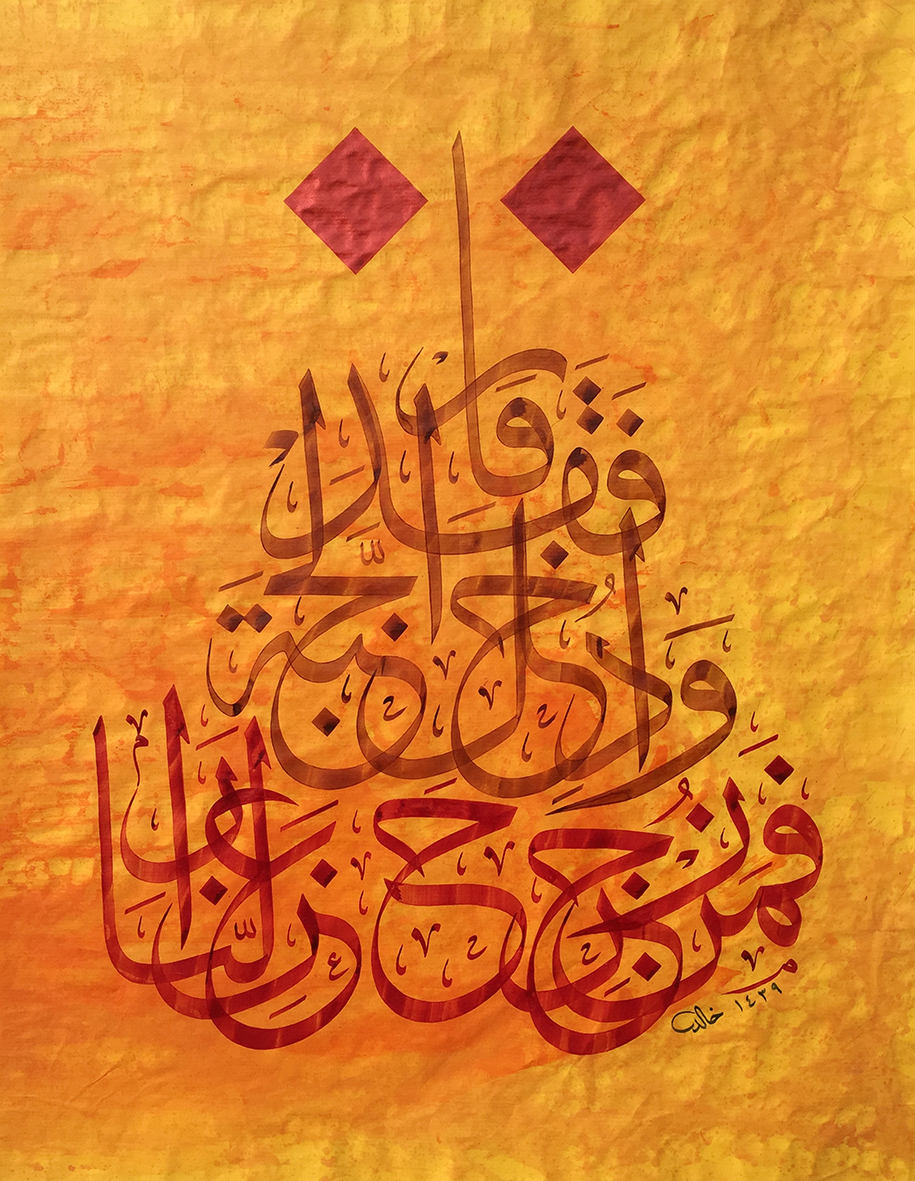 فَمَن زُحْزِحَ عَنِ النَّارِ
وَأُدْخِلَ الْجَنَّةَ
فَقَدْ فَازَ
خالد ١٤٣٩